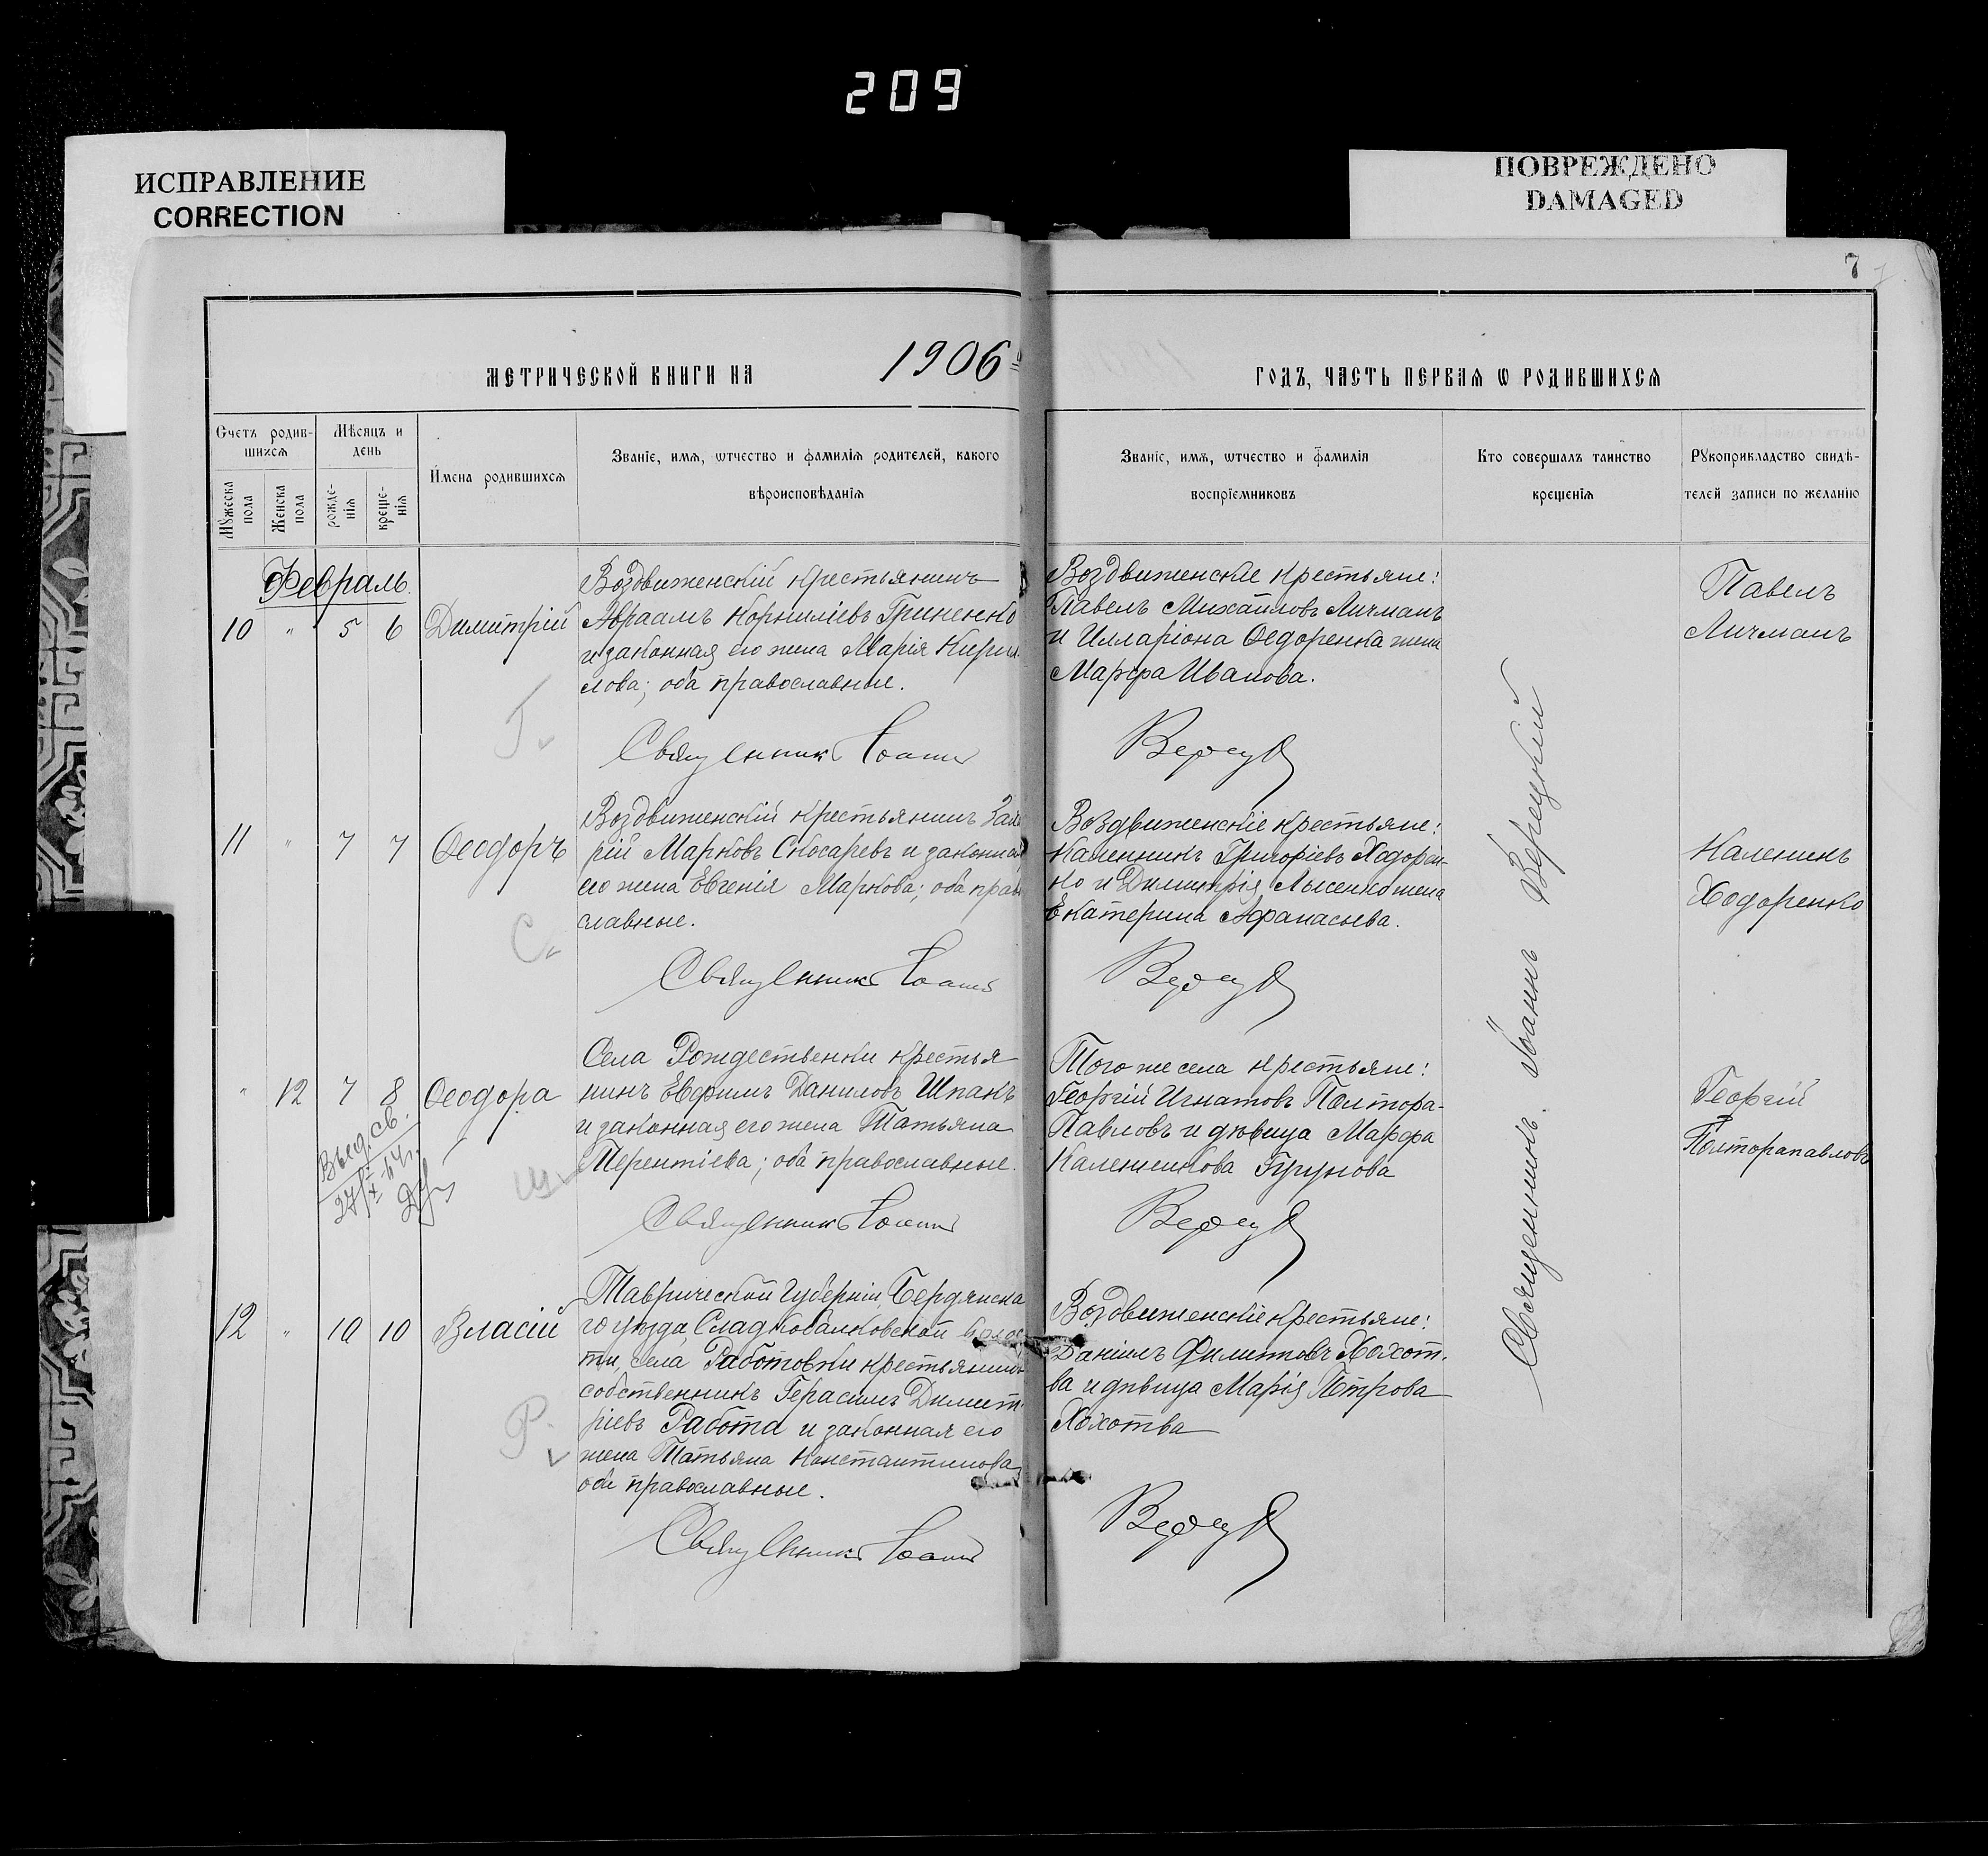 209
ИСПРАВЛЕНИЕ
CORRECTION
ПОВРЕЖДЕНО
DAMAGED
7
МЕТРИЧЕСКОЙ КНИГИ НА 1906 ГОДЪ, ЧАСТЬ ПЕРВАЯ Ѡ РОДИВШИХСЯ
Счетъ родив-
шихся
Мѣсяцъ и
день
Мужеска пола
Женска пола
рожде-
нія
креще-
нія
Имена родившихся
Званіе, имя, ѡтчество и фамилія родителей, какого
вѣроисповѣданія
Званіе, имя, ѡтчество и фамилія
воспріемниковъ
Кто совершалъ таинство
крещенія
Рукоприкладство свидѣ-
телей записи по желанію
Февраль.
10 " 5 6 Димитрій
Воздвиженскій крестьянинъ
Авраамъ Корниліевъ Гриненко
и законная его жена Марія Кирил
лова; оба православные.
Священникъ Іоаннъ
Воздвиженскіе крестьяне:
Павелъ Михайловъ Личманъ
и Илларіона Ѳедоренка жена
Марѳа Иванова.
Верец
Павелъ
Личманъ
Г.
11 " 7 7 Ѳеодоръ
Воздвиженскій крестьянинъ
рій Марковъ Скосаревъ и законная
его жена Евгенія Маркова; оба право
славные.
Священникъ Іоаннъ
Воздвиженскіе крестьяне:
Калинникъ Григоріевъ Ходорен-
ко и Димитрія Лысенко жена
Екатерина Аѳанасьева.
Верец
Каленикъ
Ходоренко
С.
" 12 7 8 Ѳеодора
Села Рождественки крестья
нинъ Евфимъ Даниловъ Шпакъ
и законная его жена Татьяна
Терентіева; оба православные.
Священникъ Іоаннъ
Того же села крестьяне:
Георгій Игнатовъ Полтора-
Павловъ и дѣвица Марѳа
Каленикова
Верец
Георгій
Полторапавловъ
12 " 10 10 Власій
Таврической Губерніи, Бердянска
го уѣзда Сладкобалковской волос
ти, села Работовки крестьянинъ
собственникъ Герасимъ Димит
ріевъ Работа и законная его
жена Татьяна Константинова
оба православные.
Священникъ Іоаннъ
Воздвиженскіе крестьяне:
Даніилъ Филиповъ Хохот-
ва и дѣвица Марія Петрова
Хохотва
Верец
Р.
Священникъ Іоаннъ Верецкій